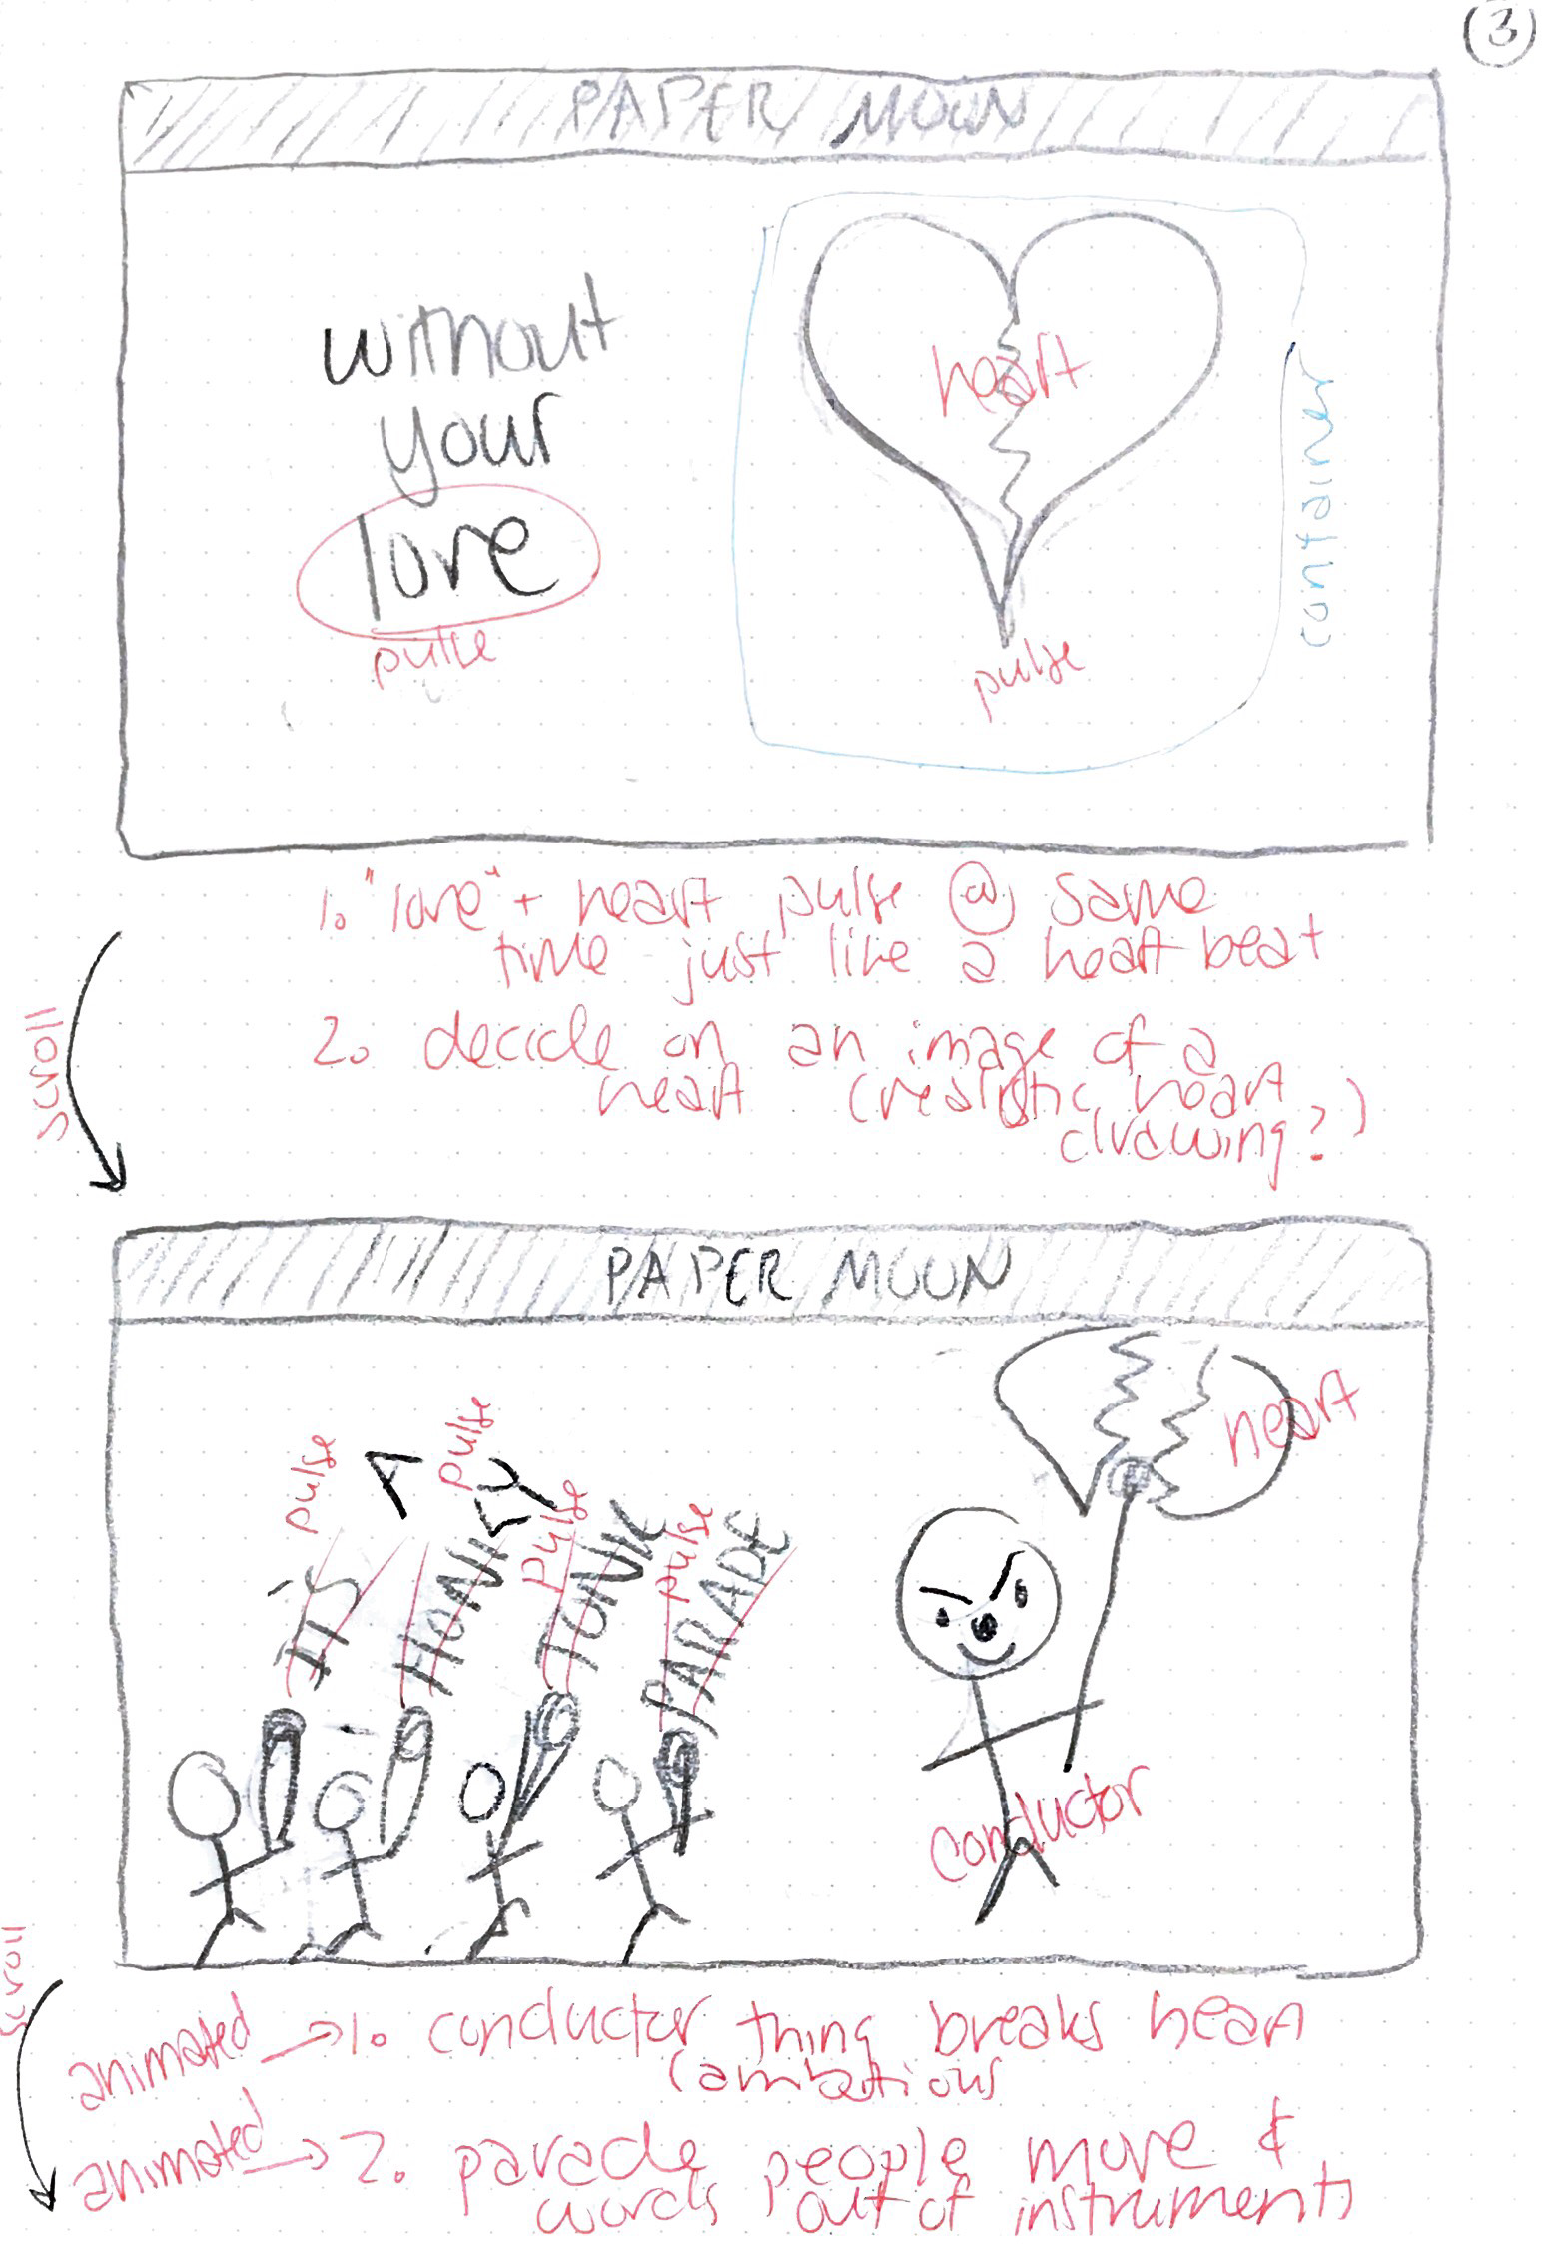 3
PAPER MOON
without
your
love
pulse
heart
pulse
container
1. "love" + heart pulse @ same
time just like a heart beat
2. decide on an image of a
heart (realistic heart
drawing?)
scroll
PAPER MOON
pulse
pulse
pulse
pulse
IT'S
A
HONKY
TONK
PARADE
heart
conductor
scroll
animated → 1. conductor thing breaks heart
(ambitious
animated → 2. parade people move &
words out of instruments